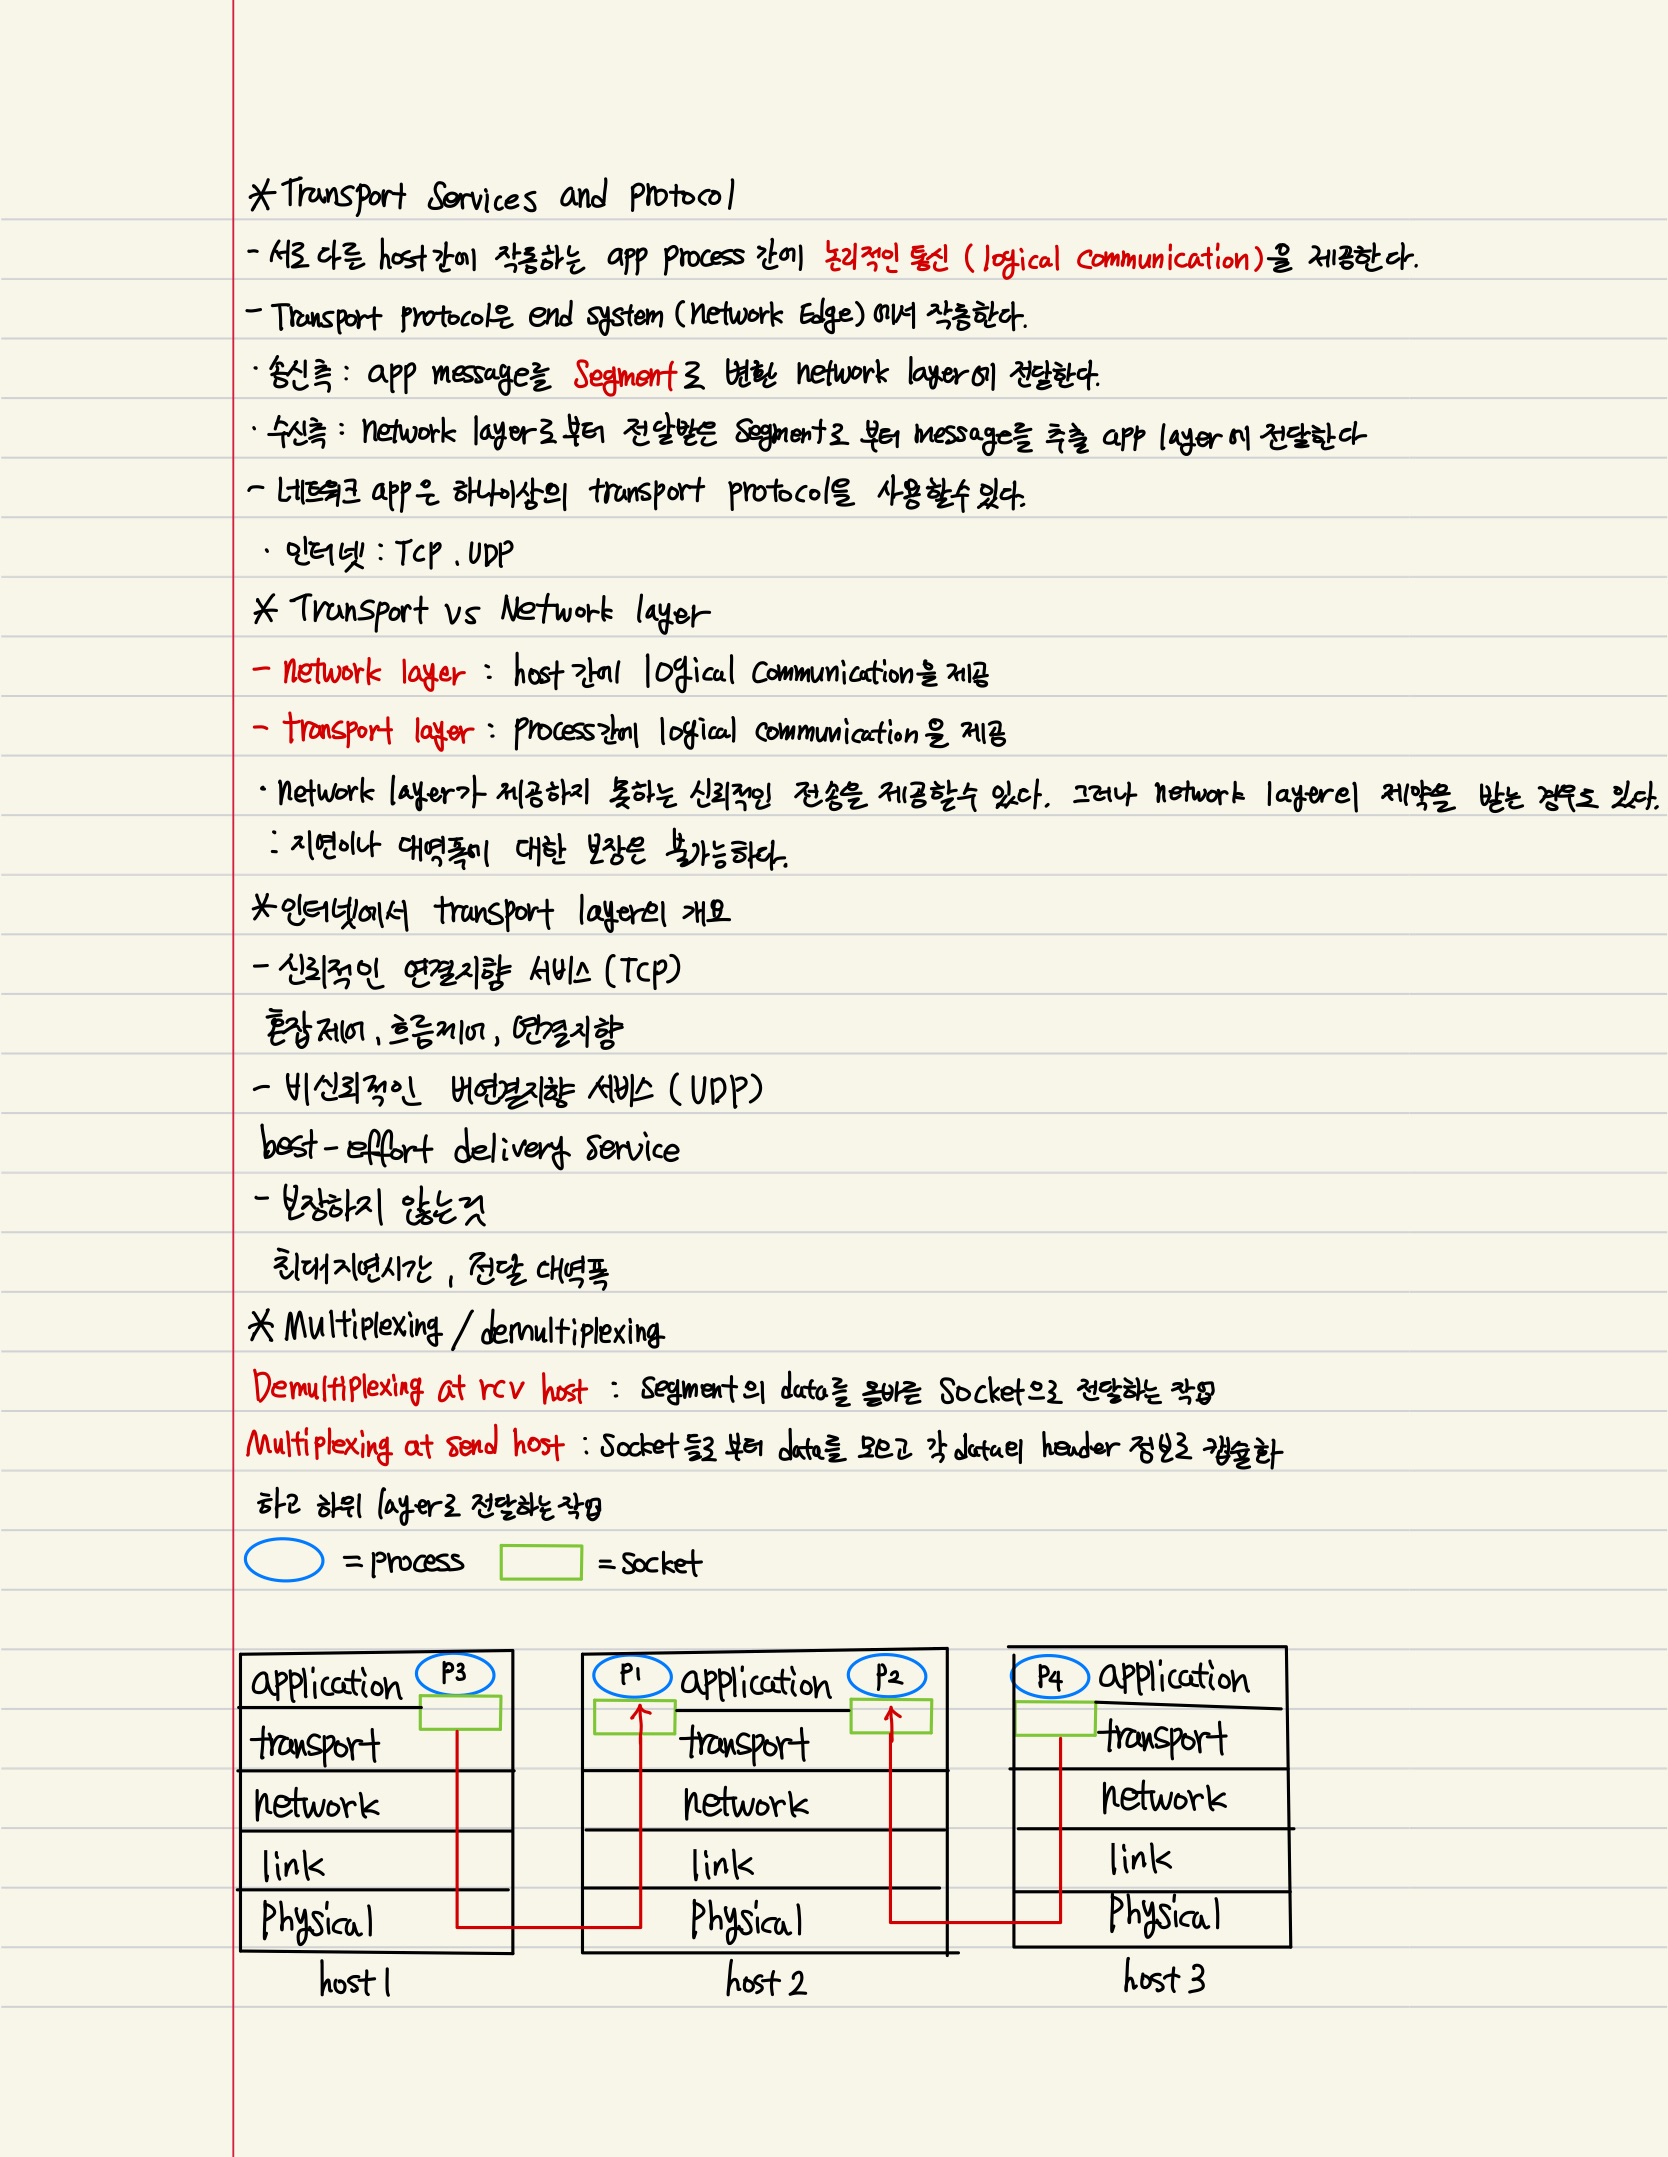 * Transport Services and Protocol
- 서로 다른 host간에 작동하는 app process 간에 논리적인 통신 (logical communication)을 제공한다.
- Transport protocol은 end system (Network Edge)에서 작동한다.
· 송신측 : app message를 Segment로 변환 network layer에 전달한다.
· 수신측 : network layer로 부터 전달받은 Segment로 부터 message를 추출 app layer에 전달한다
- 네트워크 app은 하나이상의 transport protocol을 사용할수 있다.
· 인터넷 : TCP . UDP
* Transport vs Network layer
- network layer : host간에 logical communication을 제공
- transport layer : process간에 logical communication을 제공
· network layer가 제공하지 못하는 신뢰적인 전송을 제공할수 있다. 그러나 network layer의 제약을 받는 경우도 있다.
: 지연이나 대역폭에 대한 보장은 불가능하다.
* 인터넷에서 transport layer의 개요
- 신뢰적인 연결지향 서비스 (TCP)
혼잡제어, 흐름제어, 연결지향
- 비신뢰적인 비연결지향 서비스 (UDP)
best-effort delivery service
- 보장하지 않는것
최대지연시간, 전달 대역폭
* Multiplexing / demultiplexing
Demultiplexing at rcv host : segment의 data를 올바른 socket으로 전달하는 작업
Multiplexing at send host : socket들로 부터 data를 모으고 각 data의 header 정보로 캡슐화
하고 하위 layer로 전달하는 작업
= process = socket
application P3 P1 application P2 P4 application
transport transport transport
network network network
link link link
Physical Physical Physical
host 1 host 2 host 3